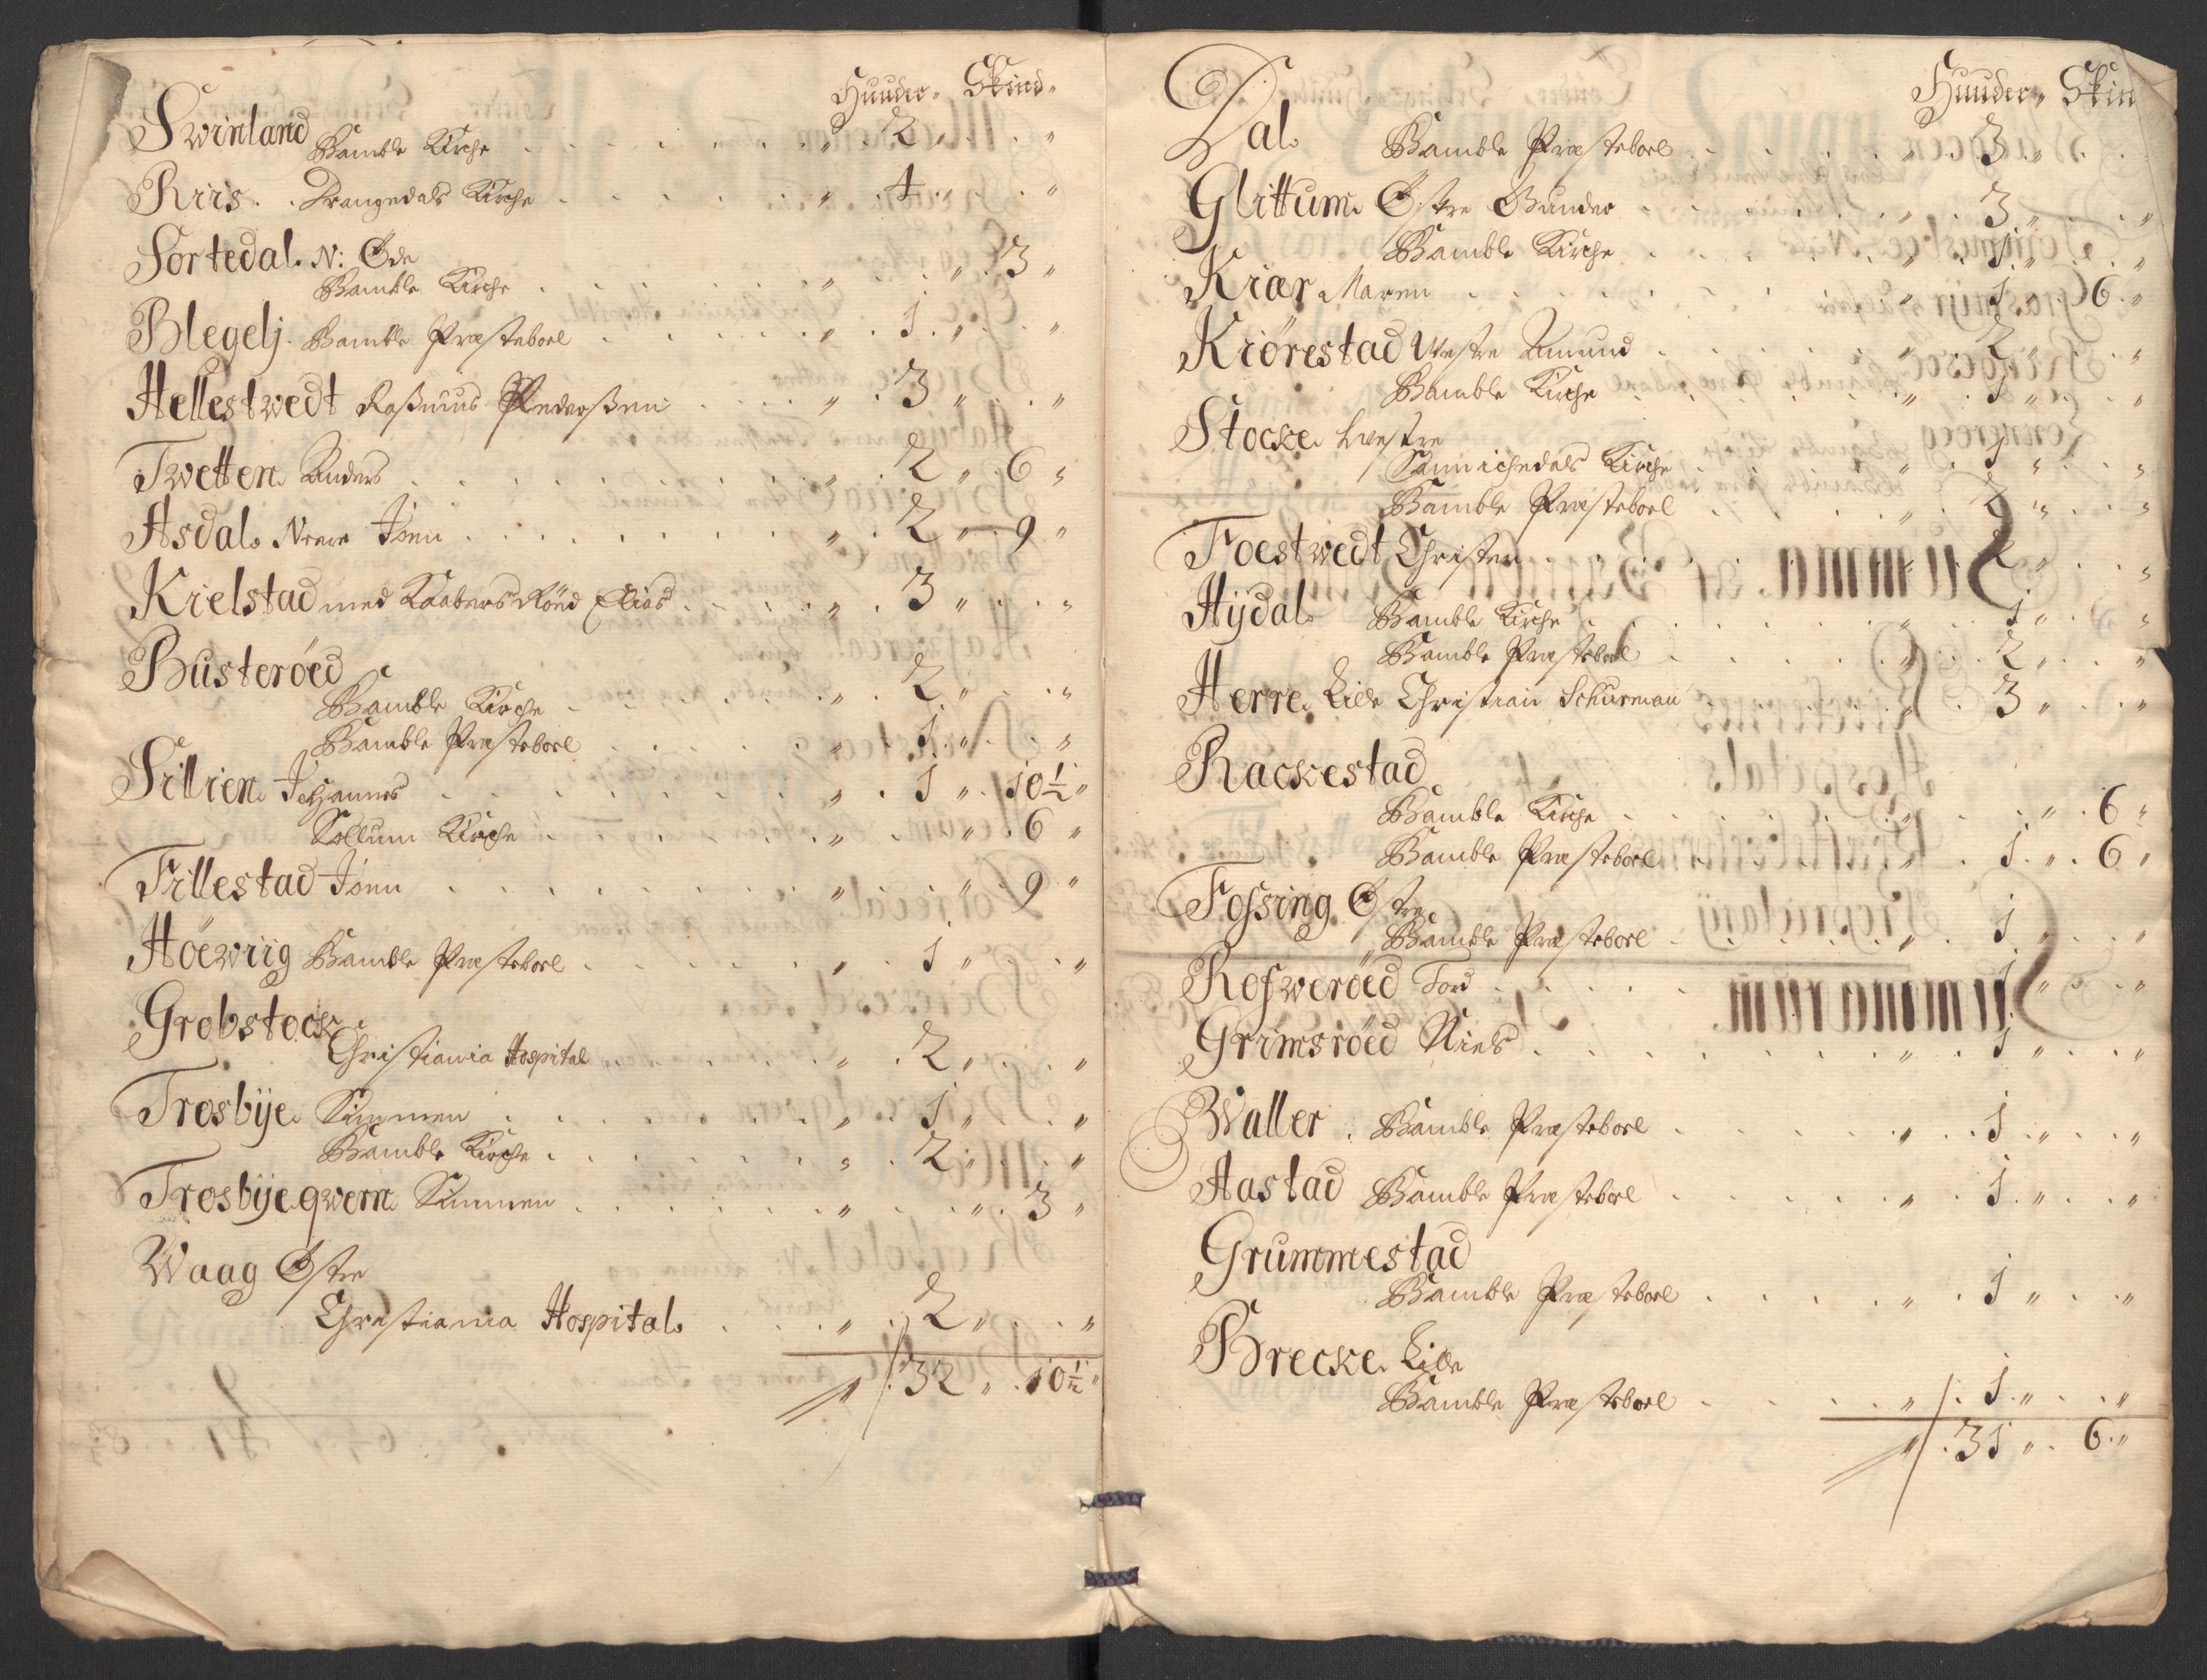 Huuder. Skind.
Swinland Bamble Kirche . . . „ 2 „ . „
Riis. Drangedals Kirche . . . „ 4 „ . „
Sortedal. N: Øde
Bamble Kirche . . . „ . „ 3 „
Blegelj. Bamble Præsteboel . . . „ 1 „ . „
Hellestwedt Rasmus Pederßen . . . „ 3 „ . „
Twetten Anders . . . „ 2 „ 6 „
Asdal. Nerre Jonn . . . „ 2 „ 9 „
Kielstad med Kaabers Röed Elias . . . „ 3 „ . „
Busteröed
Bamble Kirche . . . „ 2 „ . „
Bamble Præsteboel . . . „ 1 „ . „
Sillien. Johannes . . . „ 1 „ 10½ „
Sollum Kirche . . . „ . „ 6 „
Fillestad Jonn . . . „ . „ 9 „
Höewiig Bamble Præsteboel . . . „ 1 „ . „
Grobstock
Christiania Hospital . . . „ 2 „ . „
Trosbÿe Simmen . . . „ 1 „ . „
Bamble Kirche . . . „ 2 „ . „
Trosbÿeqwern Simmen . . . „ . „ 3 „
Waag Østre
Christiania Hospital. . . . „ 2 „ . „
„ 32 „ 10½ „
Huuder „ Skin
Dal. Bamble Præsteboel . . . „ 3 „ .
Glittum. Østre Gunder . . . „ 3 „ . „
Bamble Kirche . . . „ 1 „ . „
Kiær Maren . . . „ 1 „ 6 „
Kiörestad Westre Amund . . . „ 2 „ . „
Bamble Kirche . . . „ 1 „ . „
Stocke Westre
Sannichedals Kirche . . . „ 1 „ . „
Bamble Præsteboel . . . „ 2 „ . „
Foestwedt Christen . . . „ 2 „ . „
Hÿdal. Bamble Kirche . . . „ 1 „ . „
Bamble Præsteboel . . . „ 2 „ . „
Herre. Lille Christian Schurman . . . „ 3 „ . „
Rackestad
Bamble Kirche . . . „ . „ 6 „
Bamble Præsteboel . . . „ 1 „ 6 „
Fossing Østre
Bamble Præsteboel . . . „ 1 „ . „
Rosweröed Tord . . . „ 1 „ . „
Grimsröed Niels . . . „ 1 „ . „
Waller. Bamble Præsteboel . . . „ 1 „ . „
Aastad Bamble Præsteboel . . . „ 1 „ . „
Grummestad
Bamble Præsteboel . . . „ 1 „ . „
Brecke. Lille
Bamble Præsteboel . . . „ 1 „ . „
„ 31 „ 6 „